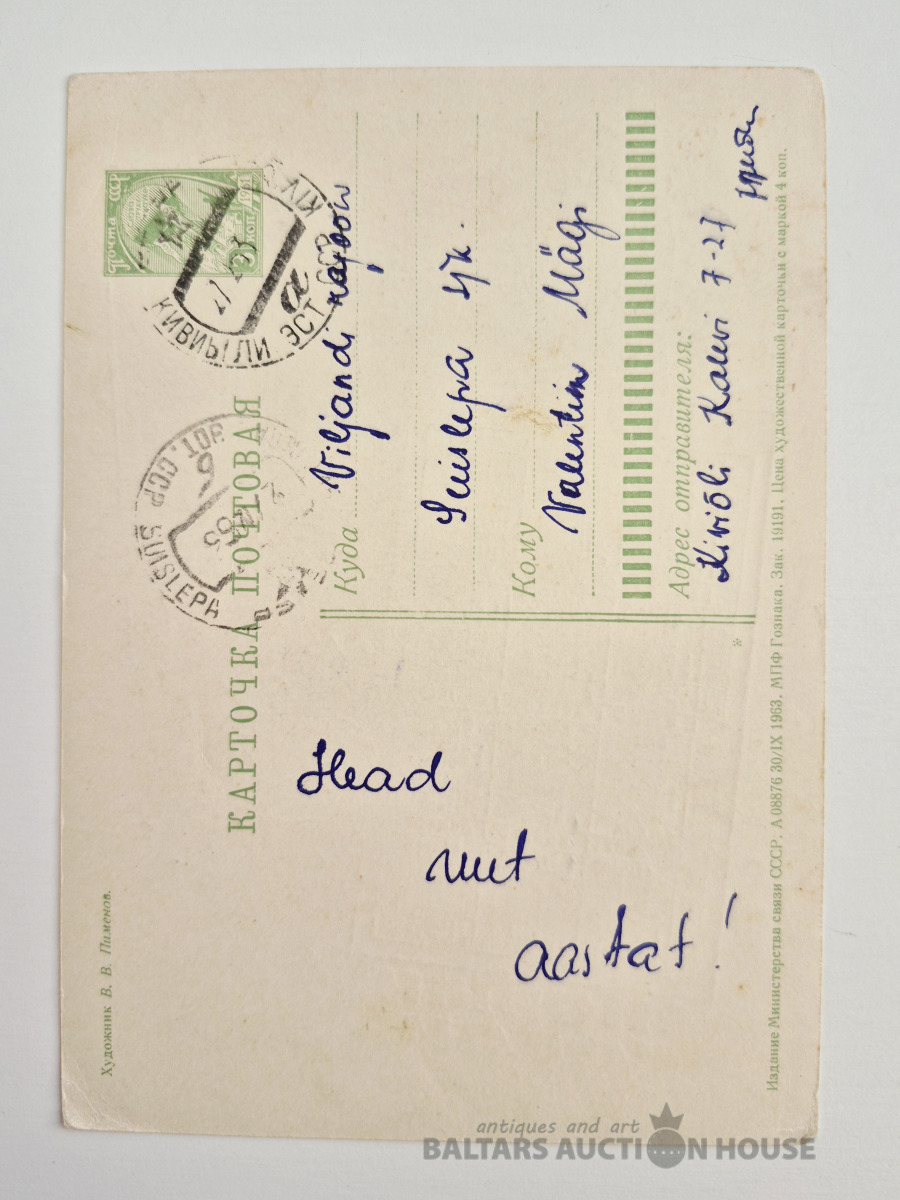 Почта СССР
1961
КИВИЫЛИ ЭСТ. ССР
КАРТОЧКА ПОЧТОВАЯ
SUISLEPA
Куда Viljandi rajoon
Suislepa sjk.
Кому Valentin Mägi
Адрес отправителя:
Kiviõli Kalevi 7-27
Head
uut
aastat!
Художник В. В. Пименов.
Издание Министерства связи СССР. А 08876 30/IX 1963. МПФ Гознака. Зак. 19191. Цена художественной карточки с маркой 4 коп.
antiques and art
BALTARS AUCTION HOUSE